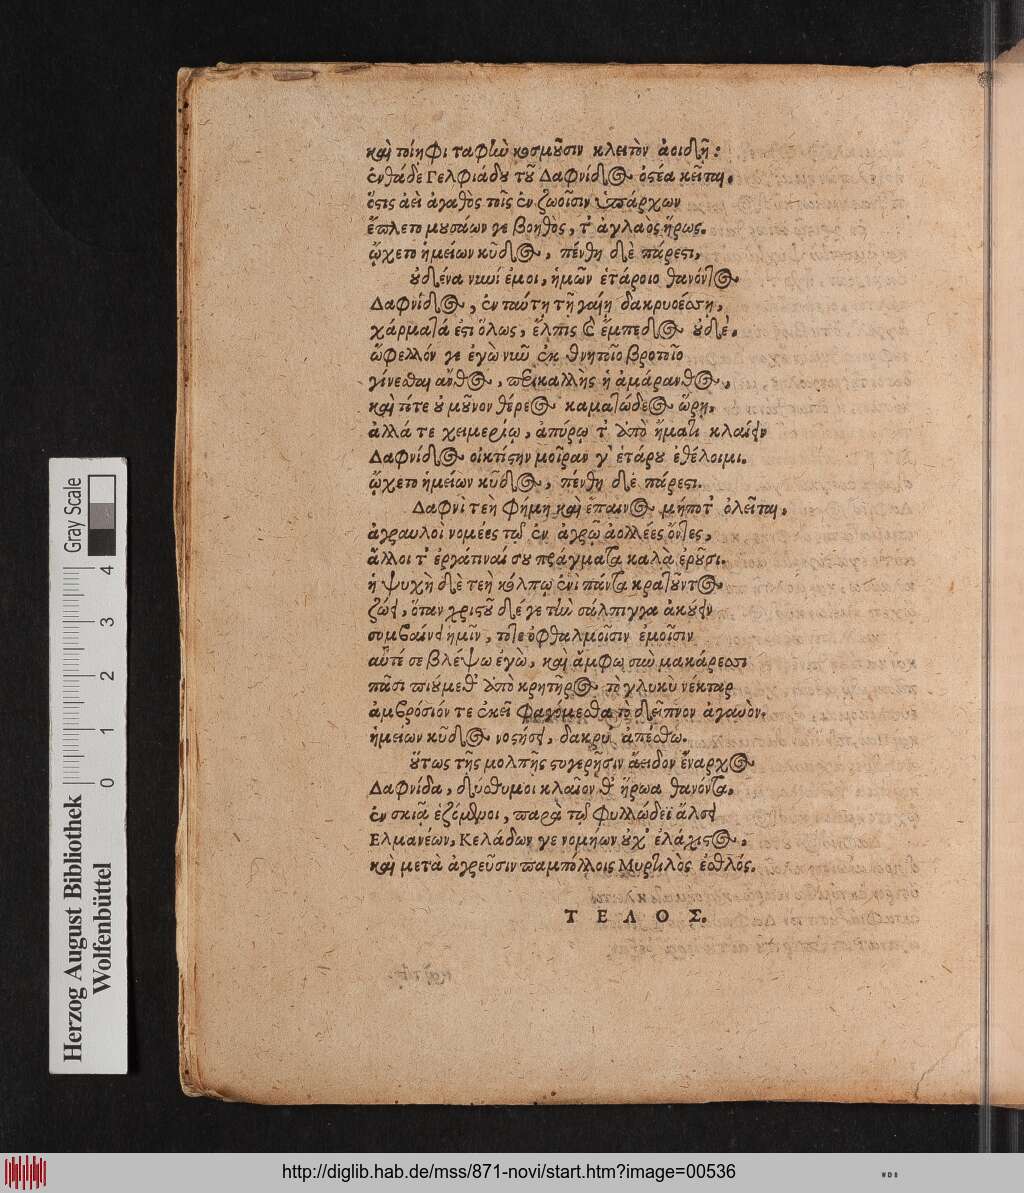 καὶ ποίηφι ταφὴν κοσμοῦσιν κλειτὸν ἀοιδῇ:
ἐνθάδε Γελφιάδου τοῦ Δαφνίδος ὀστέα κεῖται.
ὅστις ἀεὶ ἀγαθὸς τοῖς ἐν ζωοῖσιν ὑπάρχων
ἔπλετο μουσάων γε βοηθὸς, τ' ἀγλαὸς ἥρως.
ᾤχετο ἡμείων κῦδος, πένθη δὲ πάρεστι,
οὐδένα νωί ἐμοι, ἡμῶν ἑτάροιο θανόντος
Δαφνίδος, ἐν ταύτῃ τῇ γαίῃ δακρυοέσσῃ,
χάρματά ἐστι ὅλως, ἔλπις ἔμπεδος οὐδέ.
ὤφελλόν γε ἐγὼ νῦν ἐκ θνητοῖο βροτοῖο
γίνεσθαι αὖθος, περικαλλὴς ἢ ἀμάρανθος,
καὶ τότε οὐ μοῦνον θέρεος καματώδεος ὥρῃ,
ἀλλά τε χειμερίῳ, ἀπύρῳ τ' ὑπὸ ἤματι κλαίειν
Δαφνίδος οἰκτίστην μοῖραν γ' ἑτάρου ἐθέλοιμι.
ᾤχετο ἡμείων κῦδος, πένθη δὲ πάρεστι.
Δαφνὶ τεὴ φήμη καὶ ἔπαινος μήποτ' ὀλεῖται,
ἀγραυλοὶ νομέες τῷ ἐν ἀγρῷ ἀολλέες ὄντες,
ἄλλοι τ' ἐργάτιναί σου πράγματα καλὰ ἐροῦσι.
ἡ ψυχὴ δὲ τεὴ κόλπῳ ἐνὶ πάντα κρατοῦντος
ζώει, ὅταν χριστοῦ δέ γε τὴν σάλπιγγα ἀκούειν
συμβαίνει ἡμῖν, τότε ὀφθαλμοῖσιν ἐμοῖσιν
αὖτέ σε βλέψω ἐγὼ, καὶ ἄμφω σὺν μακάρεσσι
πᾶσι πιούμεθ' ἀπὸ κρητῆρος τὸ γλυκὺ νέκταρ
ἀμβρόσιόν τε ἐκεῖ φαγόμεσθα τὸ δεῖπνον ἀγαυόν.
ἡμείων κῦδος νοστήσει, δακρύ' ἀπέσθω.
οὕτως τῆς μολπῆς στυγερῆσιν ἄειδον ἔναρχος
Δαφνίδα, δύσθυμοι κλαῖον θ' ἥρωα θανόντα,
ἐν σκιᾷ ἑζόμενοι, παρὰ τῷ φυλλώδεϊ ἄλσει
Ελμανέων, Κελάδων γε νομήων οὐχ' ἐλάχιστος,
καὶ μετὰ ἀγρεῦσιν παμπόλλοις Μυρτιλὸς ἐσθλός.
ΤΕΛΟΣ.
Herzog August Bibliothek
Wolfenbüttel
Gray Scale
0 1 2 3 4
http://diglib.hab.de/mss/871-novi/start.htm?image=00536